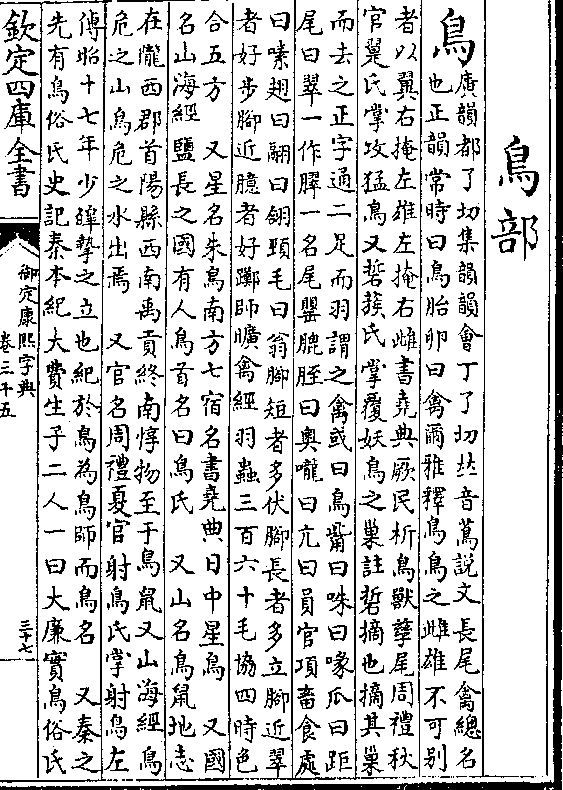 鳥部
鳥廣韻都了切集韻韻會丁了切𠀤音蔦說文長尾禽總名
也正韻常時曰鳥胎卵曰禽爾雅釋鳥鳥之雌雄不可别
者以翼右掩左雄左掩右雌書堯典厥民析鳥獸孳尾周禮秋
官翨氏掌攻猛鳥又硩蔟氏掌覆妖鳥之巢註硩擿也擿其巢
而去之正字通二足而羽謂之禽或曰鳥觜曰咮曰喙爪曰距
尾曰翠一作臎一名尾罌䏶胵曰奥嚨曰亢曰員官項畜食處
曰嗉翅曰翮曰翎頸毛曰翁脚短者多伏脚長者多立脚近翠
者好步脚近臆者好躑師曠禽經羽蟲三百六十毛協四時色
合五方 又星名朱鳥南方七宿名書堯典日中星鳥 又國
名山海經鹽長之國有人鳥首名曰鳥氏 又山名鳥鼠地志
在隴西郡首陽縣西南禹貢終南惇物至于鳥鼠又山海經鳥
危之山鳥危之水出焉 又官名周禮夏官射鳥氏掌射鳥左
傳昭十七年少皥摯之立也紀於鳥為鳥師而鳥名 又秦之
先有鳥俗氏史記秦本紀大費生子二人一曰大廉實鳥俗氏
欽定四庫全書
御定康熙字典
卷三十五
三十七